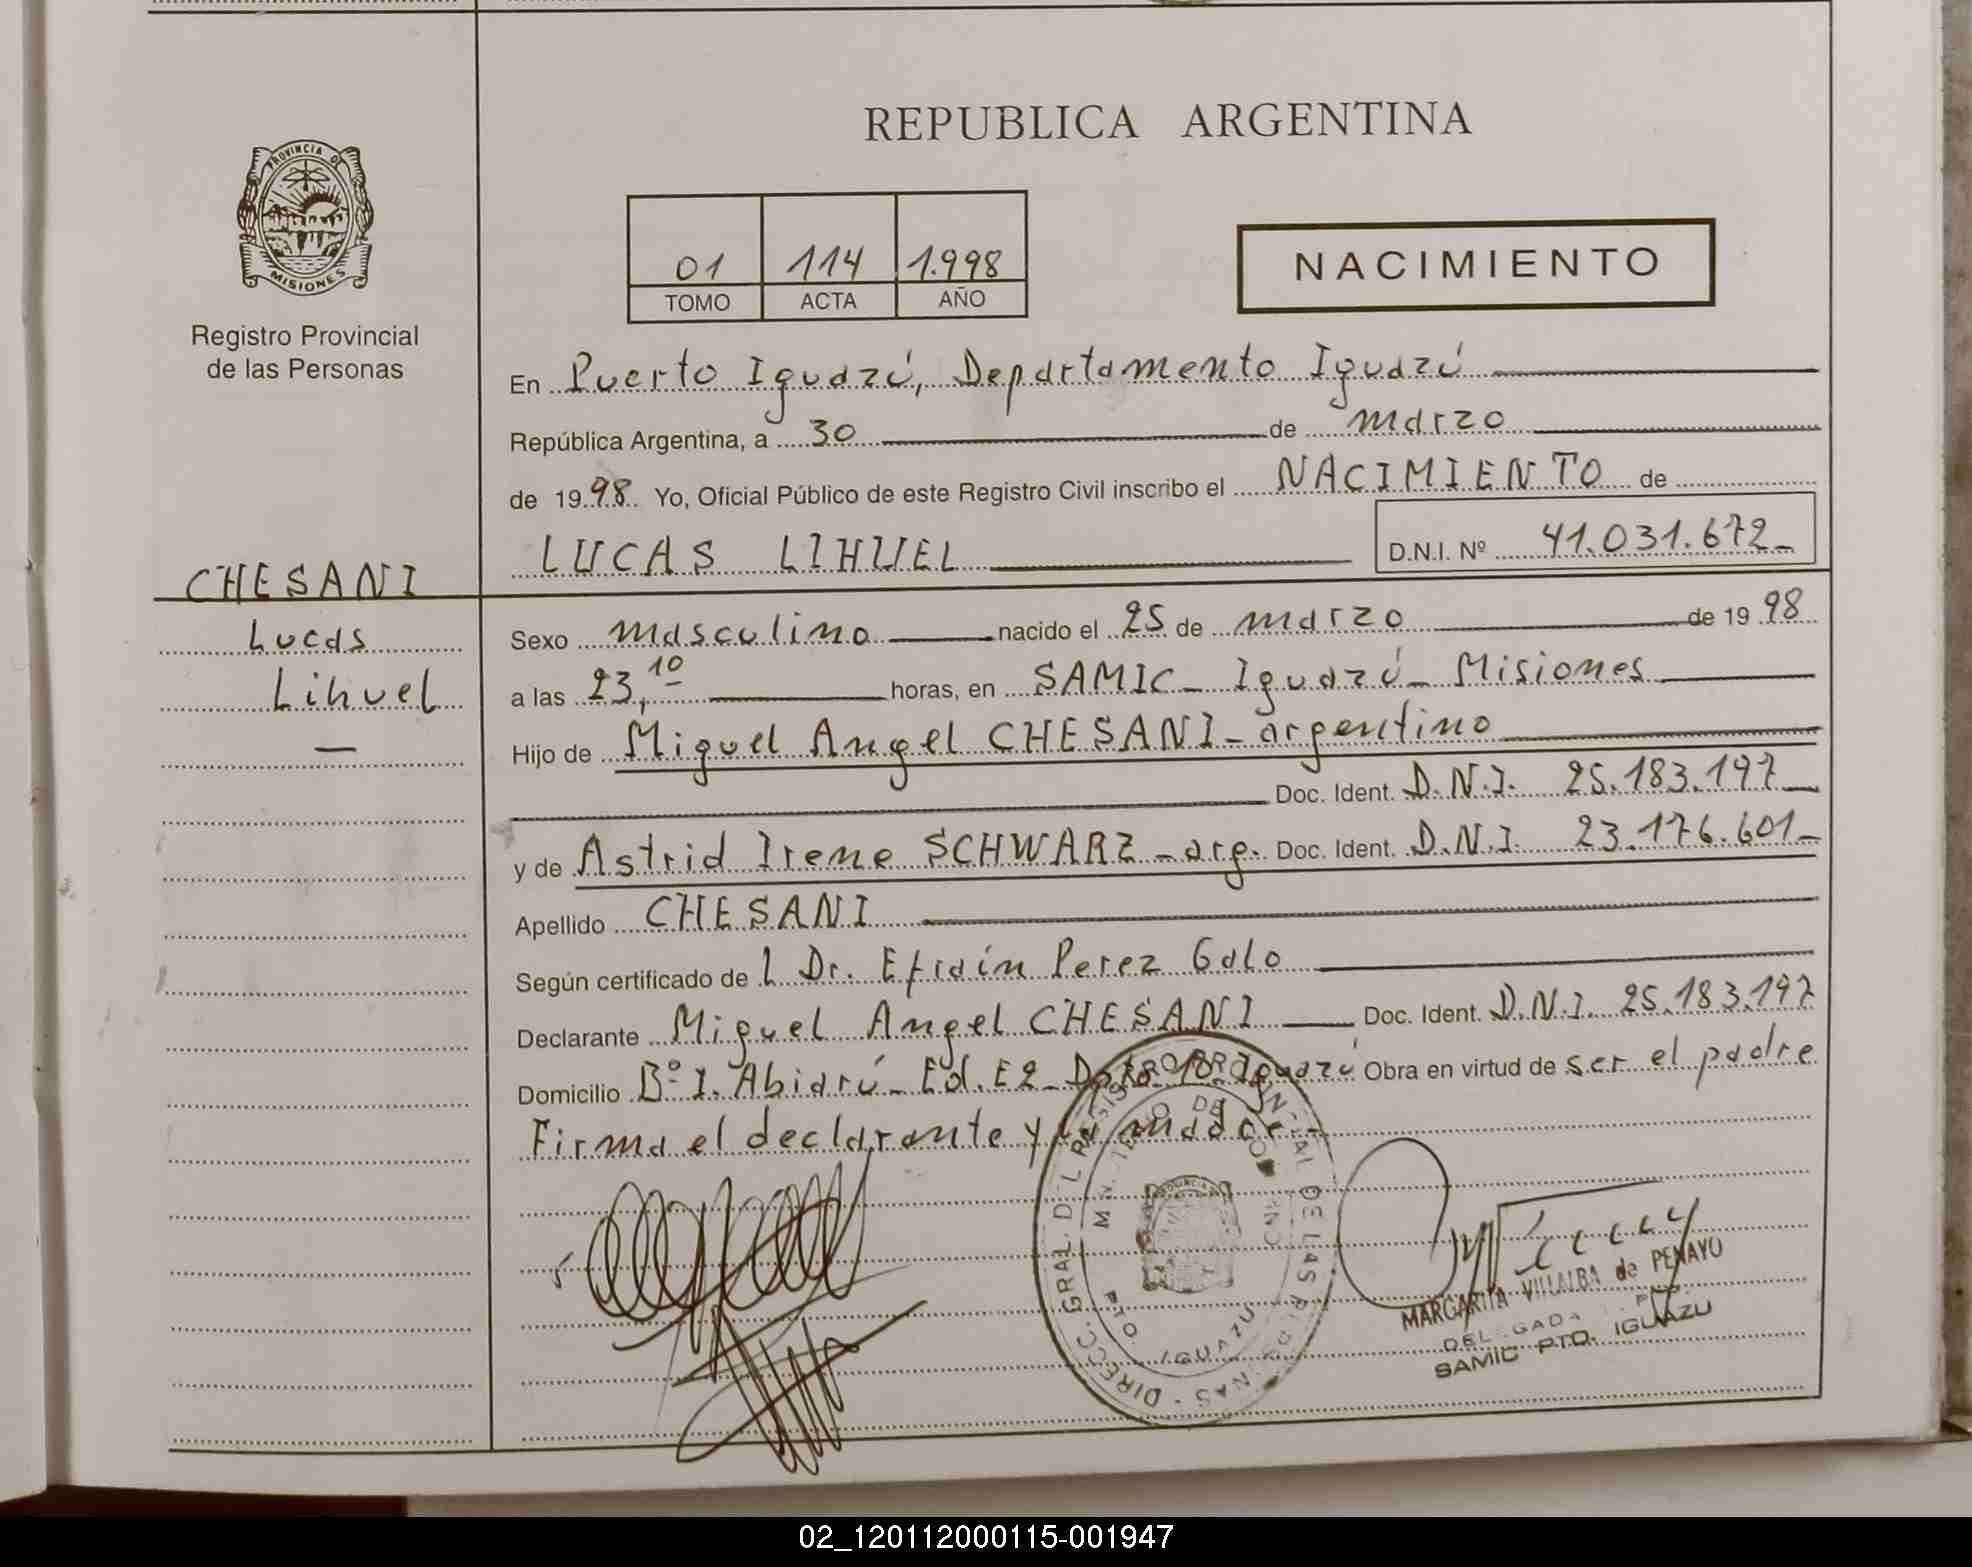 REPUBLICA ARGENTINA
PROVINCIA DE
MISIONES
Registro Provincial
de las Personas
01 114 1.998
TOMO ACTA AÑO
NACIMIENTO
En Puerto Iguazú, Departamento Iguazú
República Argentina, a 30 de marzo
de 1998 Yo, Oficial Público de este Registro Civil inscribo el NACIMIENTO de
LUCAS LIHUEL D.N.I. Nº 41.031.672
CHESANI
Lucas
Lihuel
Sexo masculino nacido el 25 de marzo de 1998
a las 23,10 horas, en SAMIC - Iguazú - Misiones
Hijo de Miguel Angel CHESANI - argentino
Doc. Ident. D.N.I. 25.183.197
y de Astrid Irene SCHWARZ - arg. Doc. Ident. D.N.I. 23.176.601
Apellido CHESANI
Según certificado de l Dr. Efraín Perez Galo
Declarante Miguel Angel CHESANI Doc. Ident. D.N.I. 25.183.197
Domicilio Bº I. Abiarú - Ed. E2 - Dpto 10 - Iguazú Obra en virtud de ser el padre
Firma el declarante y la madre
DIRECC. GRAL. DEL REGISTRO PROVINCIAL DE LAS PERSONAS
IGUAZU
MARGARITA VILLALBA de PENAYO
DELEGADA
SAMIC PTO. IGUAZU
02_120112000115-001947